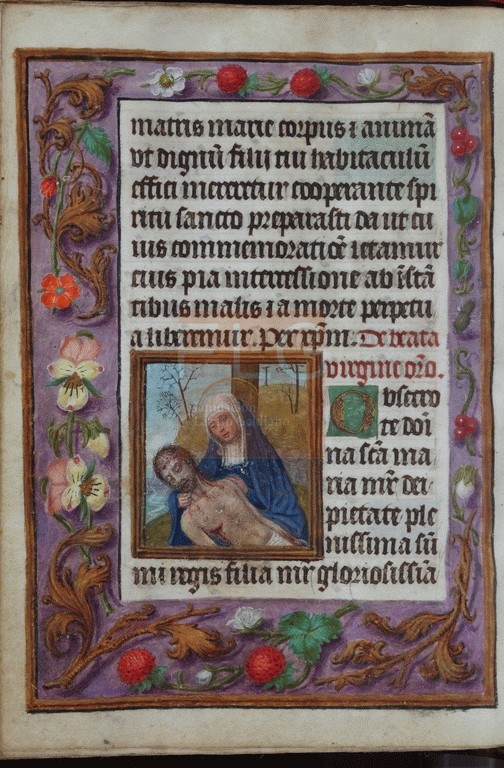 matris marie corpus ⁊ animā
vt dignū filij tui habitaculū
effici mereretur cooperante spi
ritu sancto preparasti da ut cu
ius commemoratiōe letamur
eius pia intercessione ab īstā
tibus malis ⁊ a morte perpetu
a liberemur. Per xp̄m. De beata
virgine oro.
Obsecro
te dom̄i
na scā ma
ria mr̄ dei
pietate ple
nissima sū
mi regis filia mr̄ gloriosissīa